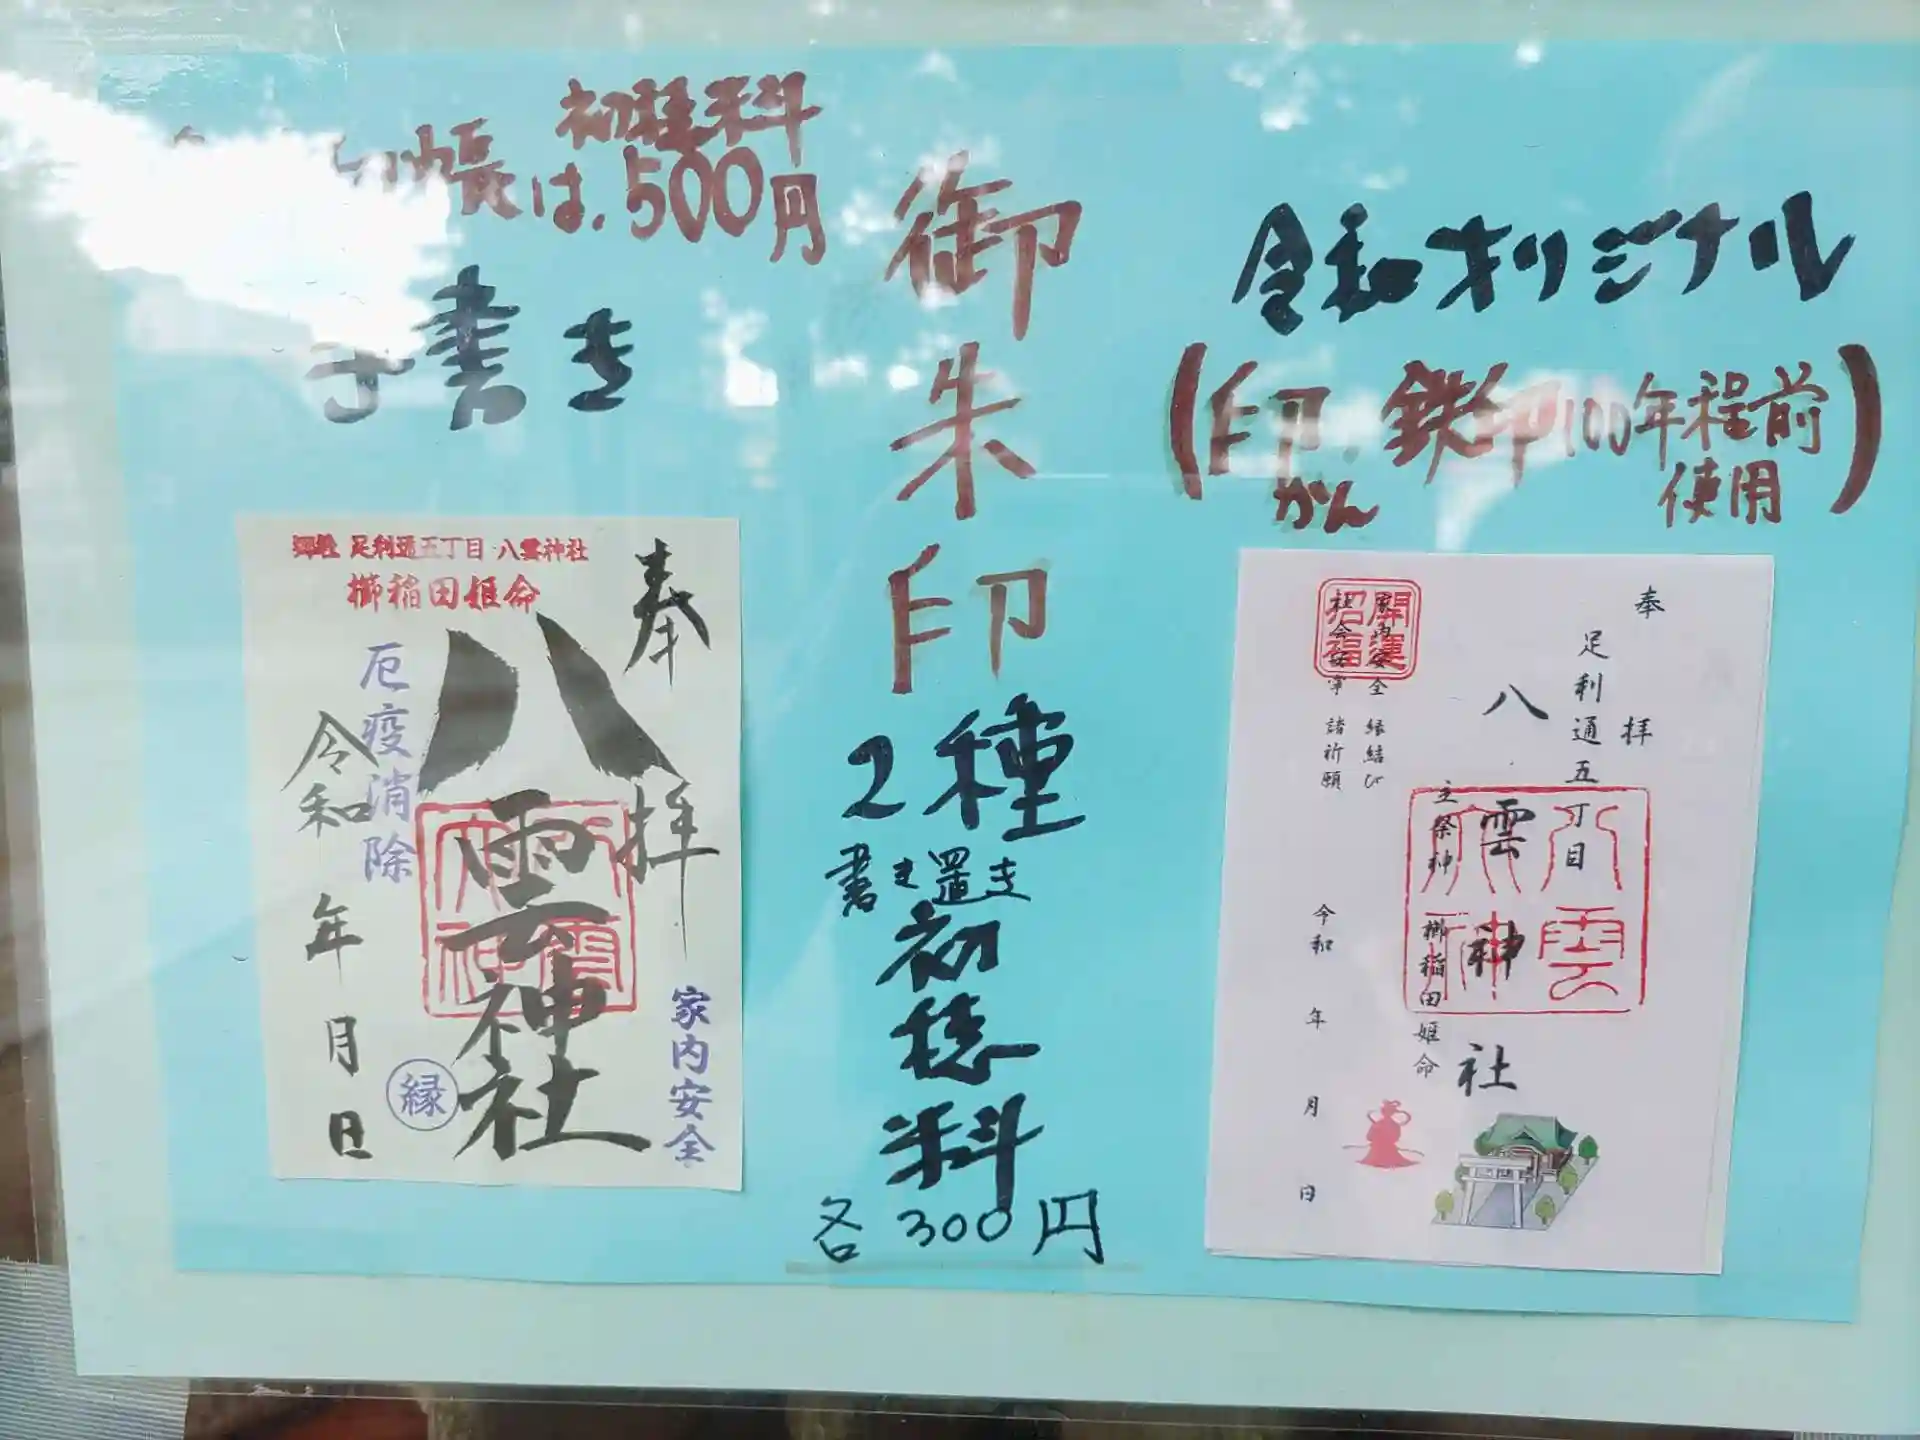 初穂料
帳は、500円
手書き
御朱印
2種
書き置き
初穂料
各300円
令和オリジナル
(印かん 鉄印100年程前使用)
郷社 足利通五丁目・八雲神社
櫛稲田姫命
奉拝
八雲神社
厄疫消除
令和 年 月 日
縁
家内安全
奉拝
足利通五丁目
八雲神社
主祭神 櫛稲田姫命
開運招福
家内安全 縁結び
社会安寧 諸祈願
令和 年 月 日
八雲